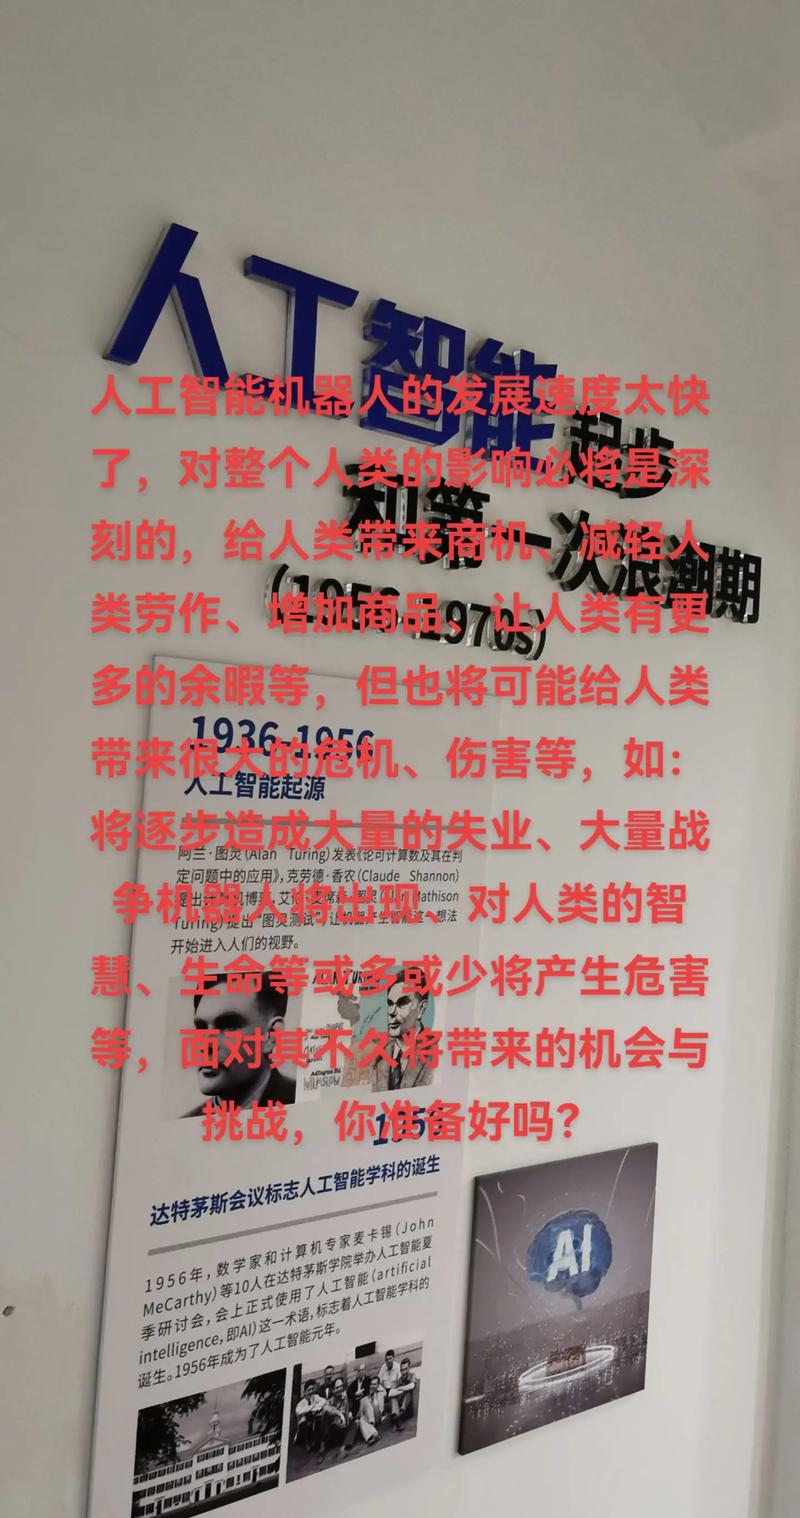 人工智能起步
和第一次浪潮期
(1956-1970s)
人工智能机器人的发展速度太快
了，对整个人类的影响必将是深
刻的，给人类带来商机、减轻人
类劳作、增加商品、让人类有更
多的余暇等，但也将可能给人类
带来很大的危机、伤害等，如：
将逐步造成大量的失业、大量战
争机器人将出现、对人类的智
慧、生命等或多或少将产生危害
等，面对其不久将带来的机会与
挑战，你准备好吗？
1936-1956
人工智能起源
阿兰·图灵(Alan Turing)发表《论可计算数及其在判
定问题中的应用》，克劳德·香农(Claude Shannon)
提出计算机博弈，艾伦·麦席森·图灵(Alan Mathison
Turing)提出"图灵测试"，让机器产生智能这一想法
开始进入人们的视野。
ALAN TURING
1956
达特茅斯会议标志人工智能学科的诞生
1956年，数学家和计算机专家麦卡锡(John
McCarthy)等10人在达特茅斯学院举办人工智能夏
季研讨会，会上正式使用了人工智能(artificial
intelligence,即AI)这一术语，标志着人工智能学科的
诞生。1956年成为了人工智能元年。
AI